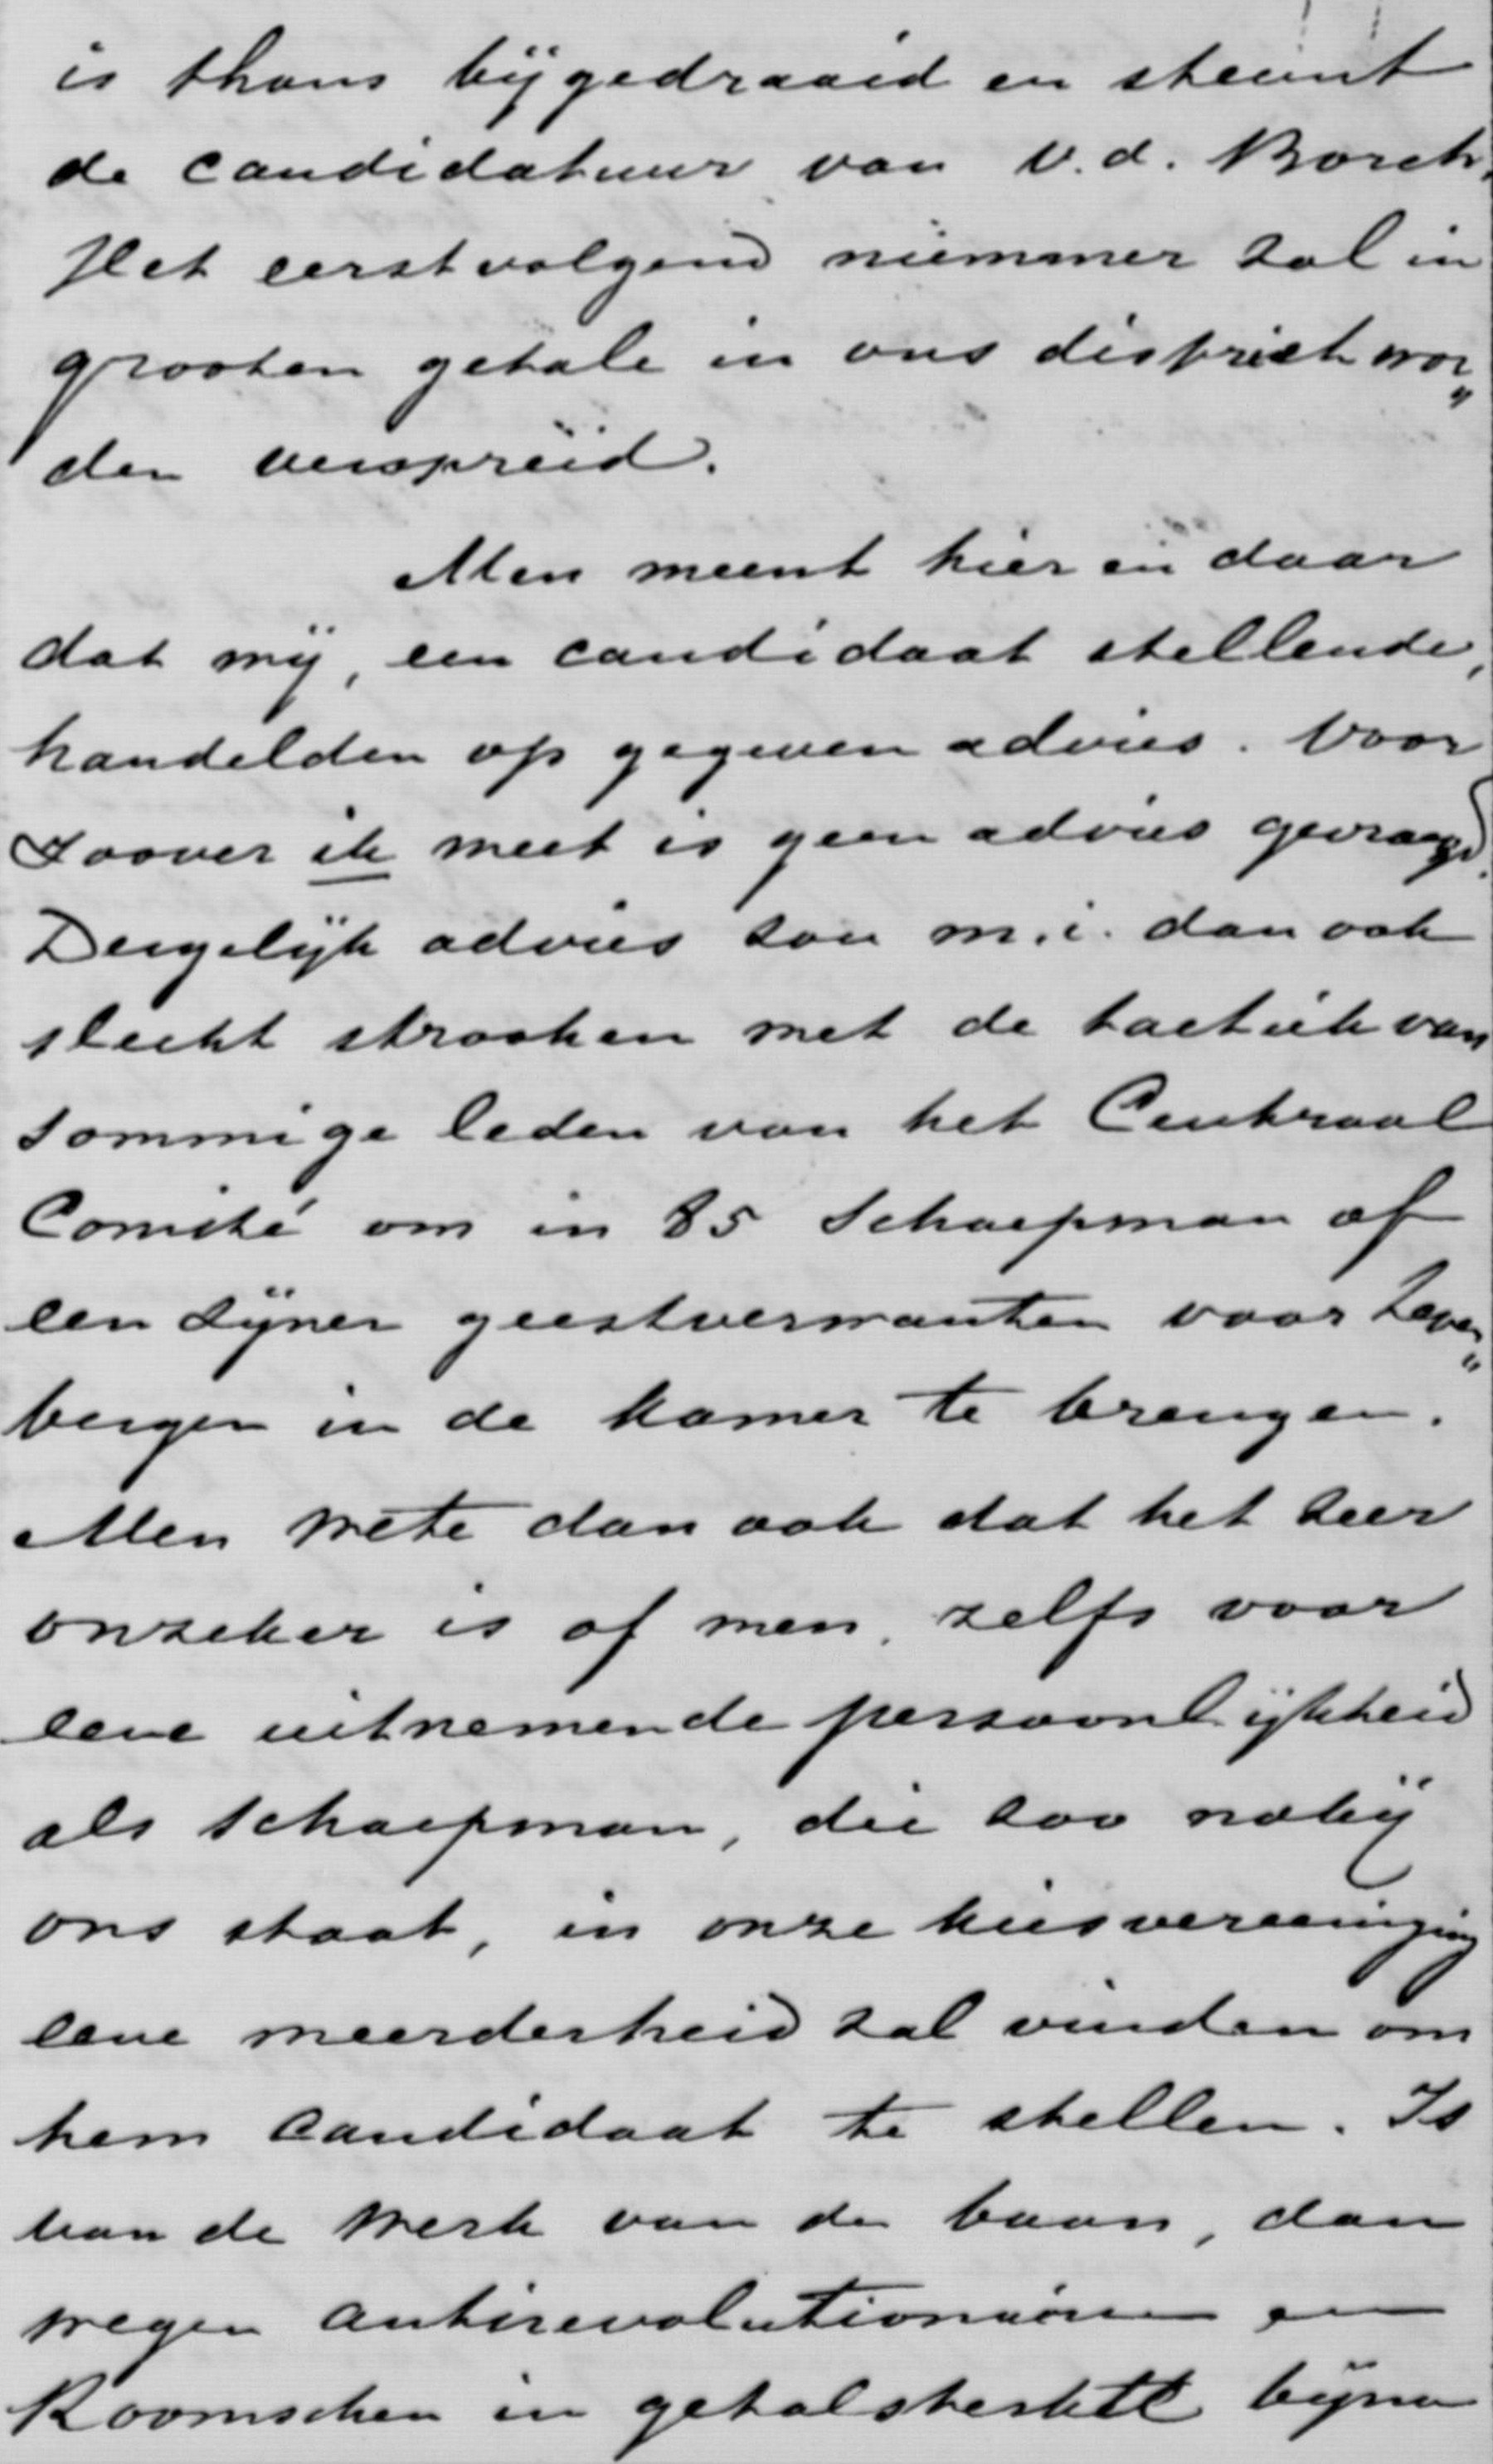 is thans bijgedraaid en steunt
de candidatuur van v.d. Borch.
Het eerstvolgend nummer zal in
grooten getale in ons district wor„
den verspreid.
Men meent hier en daar
dat wij, een candidaat stellende,
handelden op gegeven advies. Voor
zoover ik weet is geen advies gevraagd.
Dergelijk advies zou m.i. dan ook
slecht strooken met de tactiek van
sommige leden van het Centraal
Comité om in 85 Schaepman of
een zijner geestverwanten voor Zeven„
bergen in de Kamer te brengen.
Men wete dan ook dat het zeer
onzeker is of men, zelfs voor
eene uitnemende persoonlijkheid
als Schaepman, die zoo nabij
ons staat, in onze kiesvereeniging
eene meerderheid zal vinden om
hem candidaat te stellen. Is
van de Werk van de baan, dan
wegen antirevolutionairen en
Roomschen in getalsterkte bijna